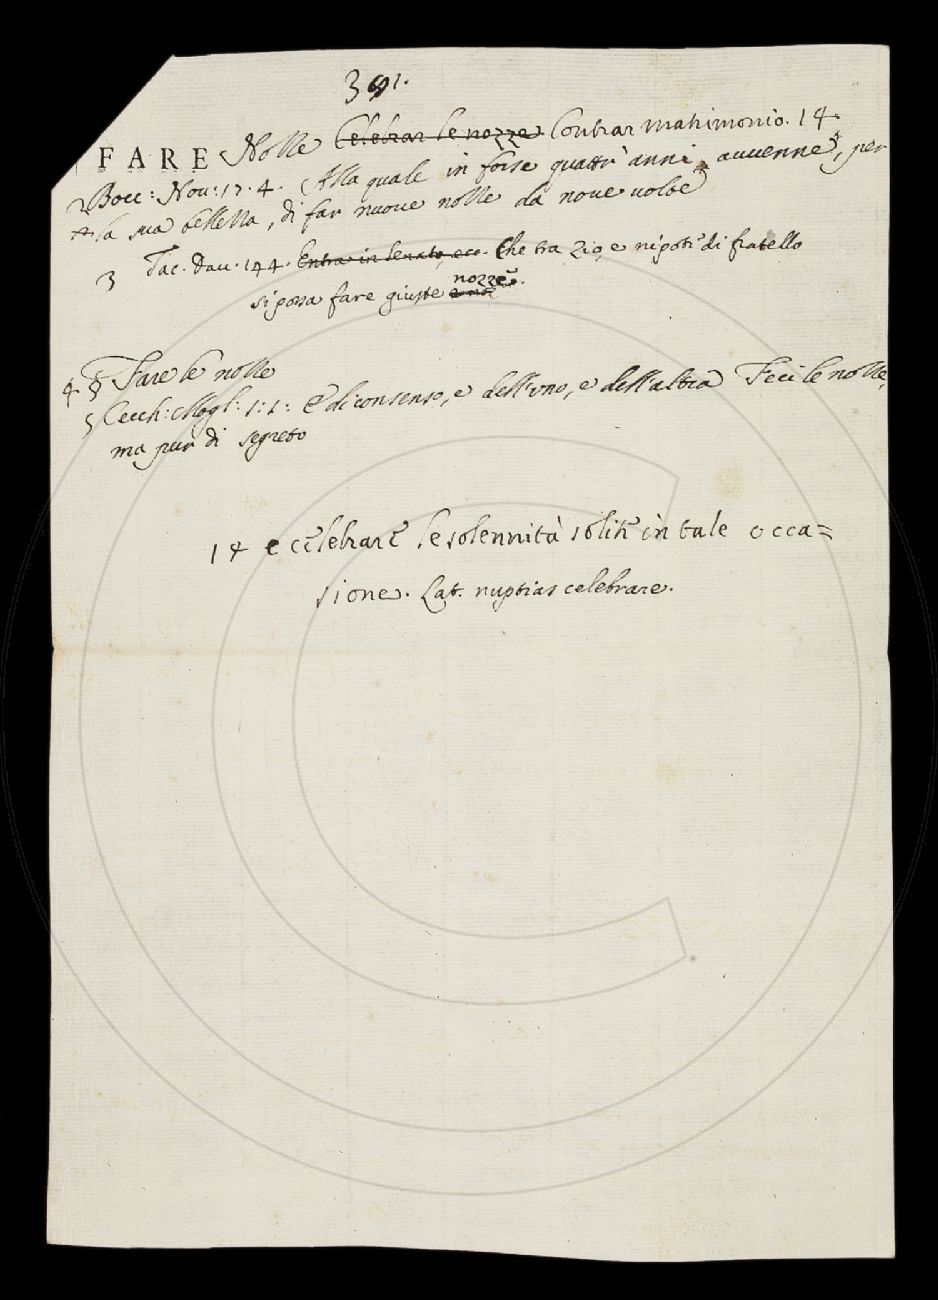 391.
FARE Nozze Celebrar le nozze Contrar matrimonio. 14.
2 Bocc: Nov: 17. 4. Alla quale in forse quattr' anni avvenne, per
la sua bellezza, di far nuove nozze da nove volte
3 Tac. Dav. 144. Entra in Senato, ec. Che tra Zio, e nipoti di fratello
si possa fare giuste nozze.
4 § Fare le nozze
5 Cecch: Mogl: 1: 1: E di consenso, e dell'uno, e dell'altra Feci le nozze,
ma pur di segreto
14 e celebrare le solennità solite in tale occa=
sione. Lat. nuptias celebrare.